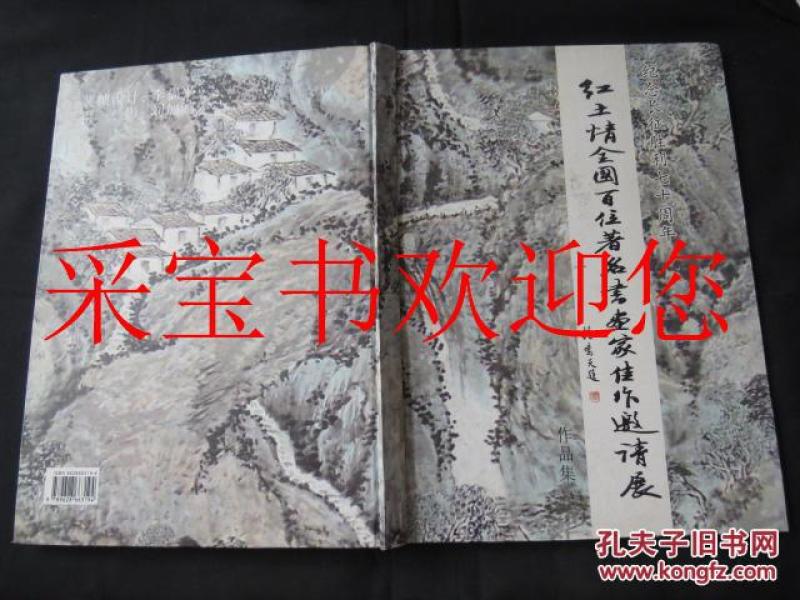 纪念长征胜利七十周年
红土情全国百位著名书画家佳作邀请展
作品集
采宝书欢迎您
孔夫子旧书网
www.kongfz.com